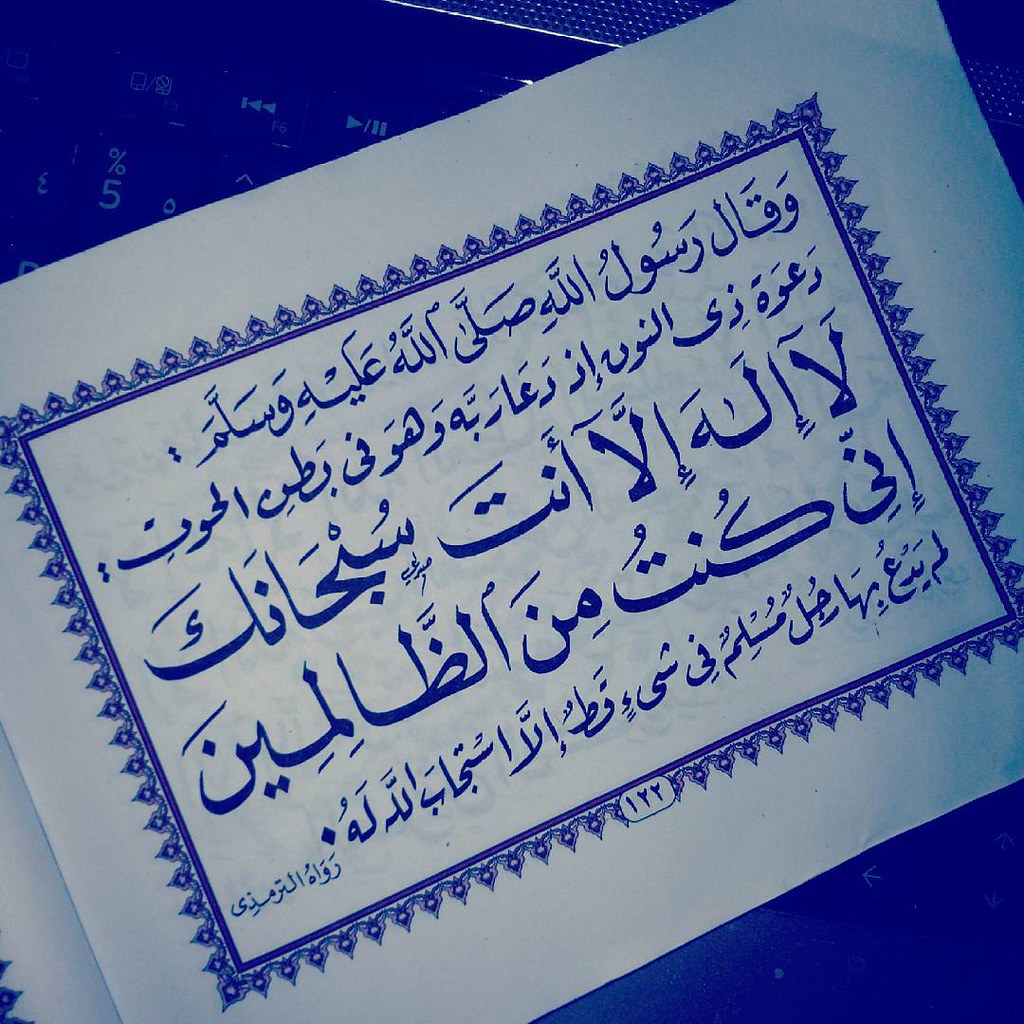 وَقَالَ رَسُولُ اللَّهِ صَلَّى اللَّهُ عَلَيْهِ وَسَلَّمَ :
دَعْوَةُ ذِى النون إِذ دَعَا رَبَّه وَهوَ فى بَطنِ الحوتِ :
لَا إِلَٰهَ إِلَّا أَنتَ سُبْحَانَكَ
إِنِّى كُنتُ مِنَ الظَّالِمِينَ
لم يَدْعُ بِهَا رَجُلٌ مُسْلِمٌ فِى شىءٍ قَطُّ إِلَّا اسْتَجَابَ اللَّه لَهُ .
رَوَاهُ الترمذِى
١٢٢
F5
F6
%
5
٤
٥
^